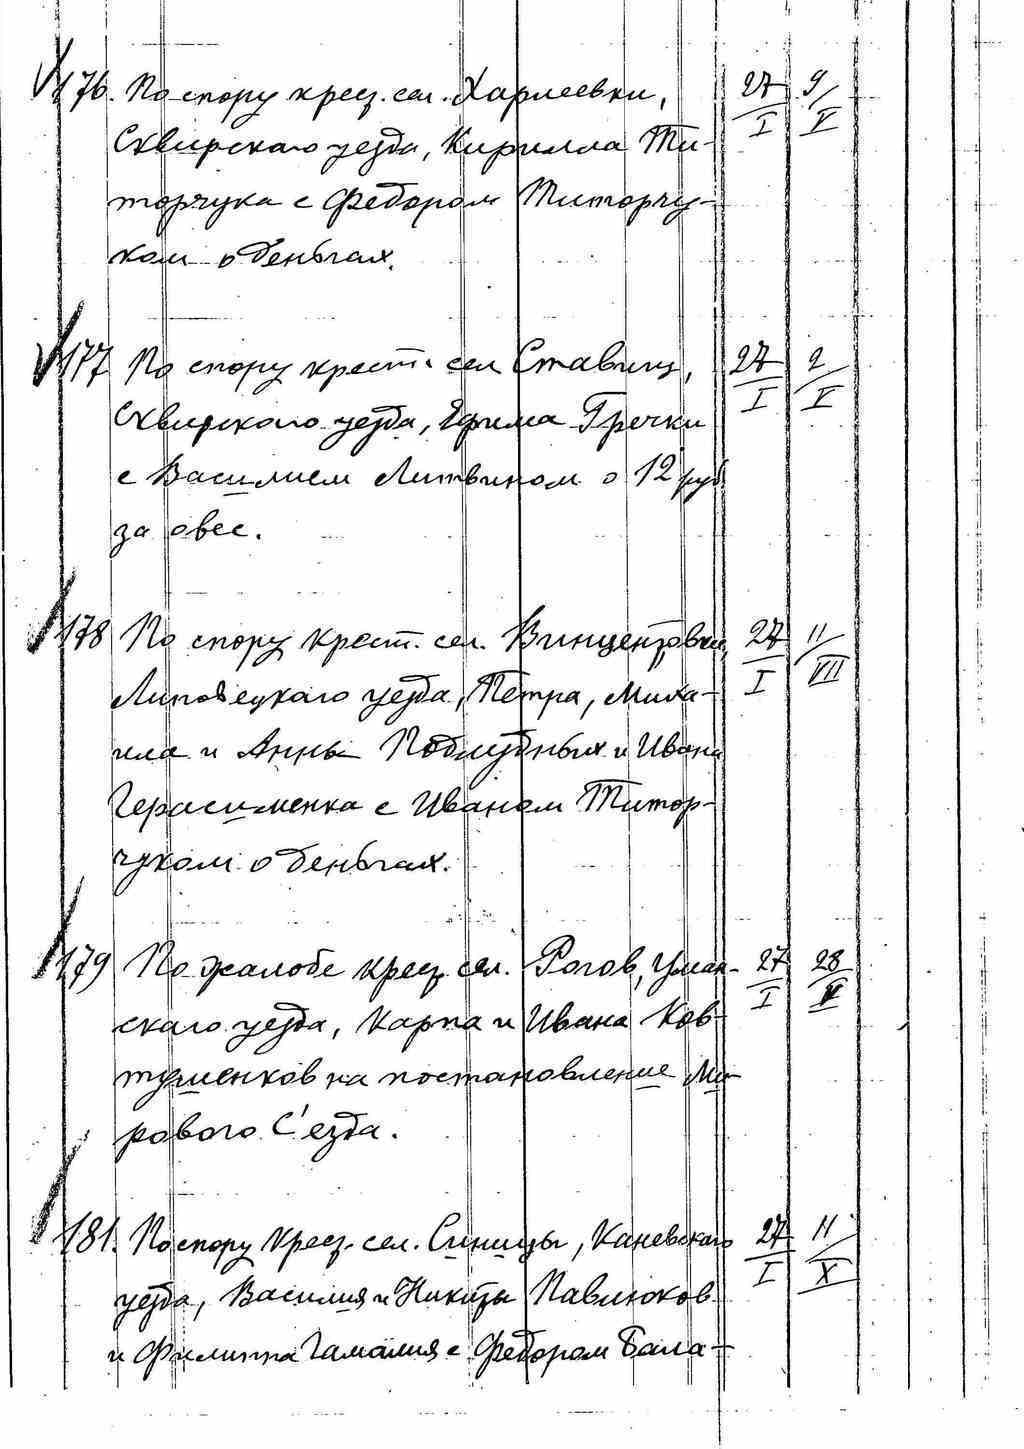 176. По спору крес. сел. Харлеевки, 27/I 9/V
Сквирскаго уезда, Кирилла Ти-
торчука с Федором Титорчу-
ком о деньгах.
177 По спору крест. сел Ставищ, 27/I 2/V
Сквирскаго уезда, Ефима Гречки
с Василием Литвином о 12 руб
за овес.
178 По спору крест. сел. Винцентовки, 27/I 11/VII
Липовецкаго уезда, Петра, Миха-
ила и Анны Поблудных и Ивана
Герасименка с Иваном Титор-
чуком о деньгах.
179 По жалобе крес. сел. Рогов, Уман- 27/I 28/V
скаго уезда, Карпа и Ивана Ков-
тушенков на постановление Ми-
рового С'езда.
181. По спору крес. сел. Синицы, Каневскаго 27/I 11/X
уезда, Василия и Никиты Павлюков
и Филиппа Гамалия с Федором Бала-